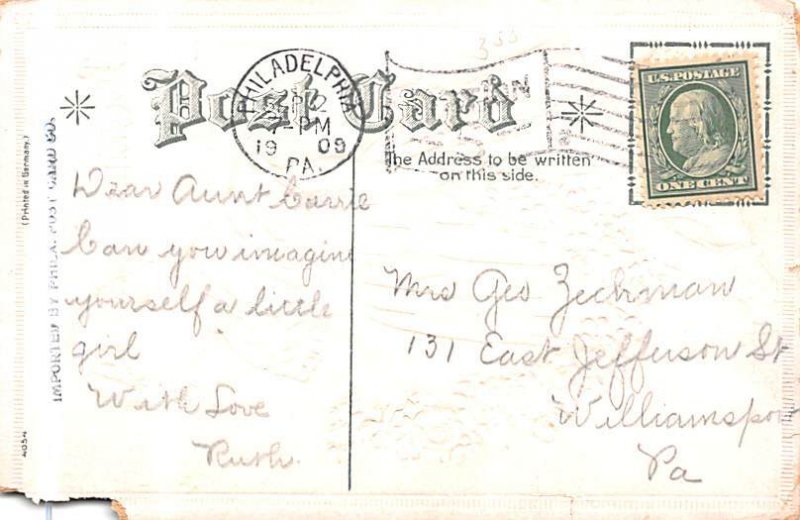 Post Card
PHILADELPHIA
2
7-PM
19 09
PA.
353
U.S. POSTAGE
ONE CENT
The Address to be written
on this side.
(Printed in Germany.)
IMPORTED BY PHILA. POST CARD CO.
4054
Dear Aunt Carrie
Can you imagine
yourself a little
girl
With Love
Ruth.
Mrs Geo Zechman
131 East Jefferson St
Williamspor
Pa